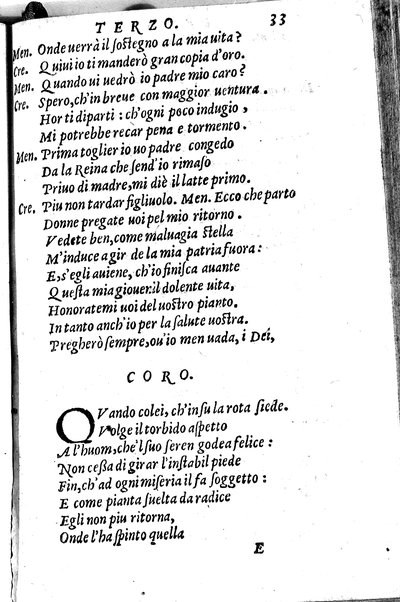 TERZO. 33
Men. Onde uerrà il ſoſtegno a la mia uita?
Cre. Quiui io ti manderò gran copia d'oro.
Men. Quando ui uedrò io padre mio caro?
Cre. Spero, ch'in breue con maggior uentura.
Hor ti diparti: ch'ogni poco indugio,
Mi potrebbe recar pena e tormento.
Men. Prima toglier io uo padre congedo
Da la Reina che ſend'io rimaſo
Priuo di madre, mi diè il latte primo.
Cre. Piu non tardar figliuolo. Men. Ecco che parto
Donne pregate uoi pel mio ritorno.
Vedete ben, come maluagia ſtella
M'induce a gir de la mia patria fuora:
E, s'egli auiene, ch'io finiſca auante
Queſta mia giouenil dolente uita,
Honoratemi uoi del uoſtro pianto.
In tanto anch'io per la ſalute uoſtra.
Pregherò ſempre, ou'io men uada, i Dei,
CORO.
QVando colei, ch'in ſu la rota ſiede.
Volge il torbido aſpetto
A l'huom, che'l ſuo ſeren godea felice:
Non ceſſa di girar l'inſtabil piede
Fin, ch'ad ogni miſeria il fa ſoggetto:
E come pianta ſuelta da radice
Egli non piu ritorna,
Onde l'ha ſpinto quella
E